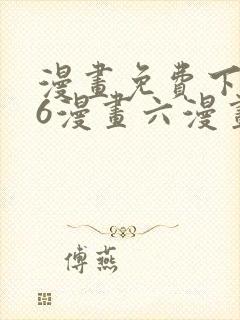 漫畫免費下
6漫畫六漫畫
傅燕